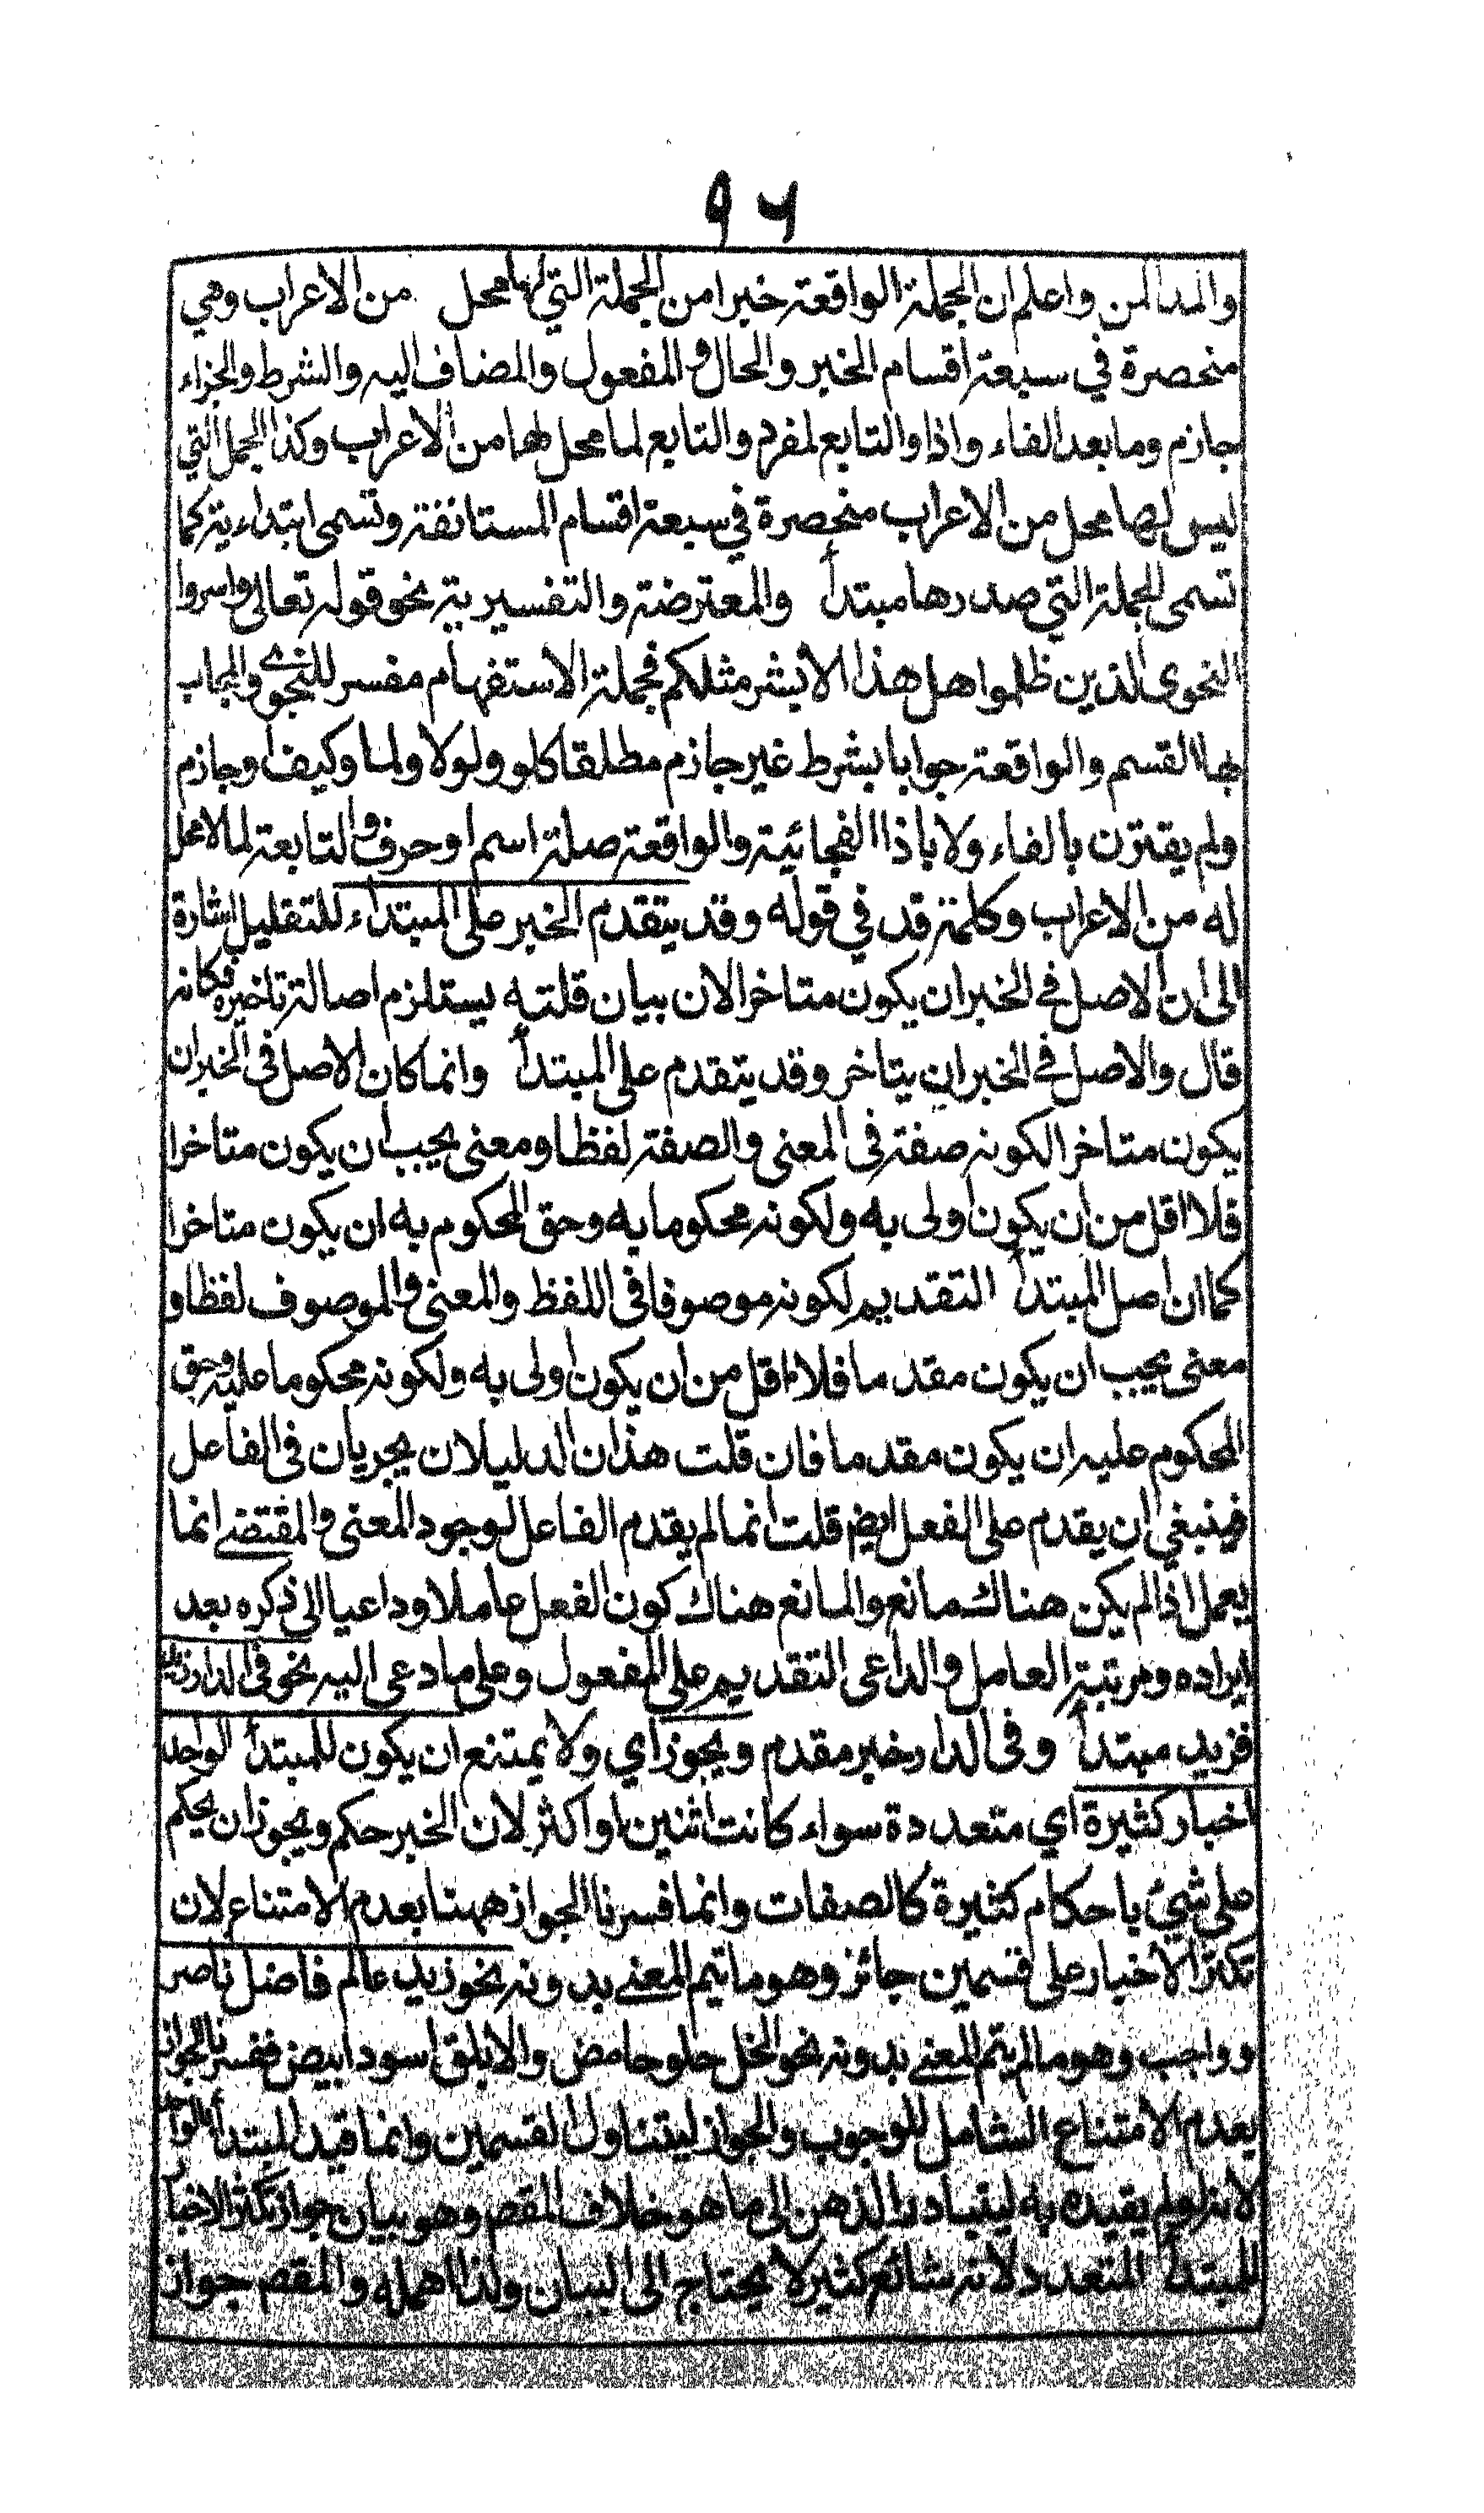 ٩٦
والمد المن واعلم ان الجملة الواقعة خبرا من الجملة التي لها محل من الاعراب وهي
منحصرة في سبعة اقسام الخبر والحال والمفعول والمضاف اليه والشرط والجزاء
جازم وما بعد الفاء واذا والتابع لمفرد والتابع لما محل لها من الاعراب وكذا الجمل التي
ليس لها محل من الاعراب منحصرة في سبعة اقسام المستانفة وتسمى ابتداءية كما
تسمى الجملة التي صدرها مبتدأ والمعترضة والتفسيرية نحو قوله تعالى واسروا
النجوى الذين ظلموا هل هذا الا بشر مثلكم فجملة الاستفهام مفسر للنجوى والمجاب
بها القسم والواقعة جوابا بشرط غير جازم مطلقا كلو ولولا ولما وكيف وجازم
ولم يقترن بالفاء ولا باذا الفجائية والواقعة صلة اسم او حرف والتابعة لما لا محل
له من الاعراب وكلمة قد في قوله وقد يتقدم الخبر على المبتداء للتقليل اشارة
الى ان الاصل في الخبر ان يكون متاخرا لان بيان قلته يستلزم اصالة تاخيره فكانه
قال والاصل في الخبر ان يتاخر وقد يتقدم على المبتدأ وانما كان الاصل في الخبر ان
يكون متاخرا لكونه صفة في المعنى والصفة لفظا ومعنى يجب ان يكون متاخرا
فلا اقل من ان يكون اولى به ولكونه محكوما به وحق المحكوم به ان يكون متاخرا
كما ان اصل المبتدأ التقديم لكونه موصوفا في اللفظ والمعنى والموصوف لفظا و
معنى يجب ان يكون مقدما فلا اقل من ان يكون اولى به ولكونه محكوما عليه وحق
المحكوم عليه ان يكون مقدما فان قلت هذان الدليلان يجريان في الفاعل
فينبغي ان يقدم على الفعل ايض قلت انما لم يقدم الفاعل لوجود المعنى والمقتضي انما
يعمل اذا لم يكن هناك مانع والمانع هناك كون الفعل عاملا وداعيا الى ذكره بعد
ايراده ومرتبة العامل والداعى التقديم على المفعول وعلى ما دعى اليه نحو في الدار زيد
فزيد مبتدأ وفى الدار خبر مقدم ويجوز اي ولا يمتنع ان يكون للمبتدأ الواحد
اخبار كثيرة اي متعددة سواء كانت اثنين او اكثر لان الخبر حكم ويجوز ان يحكم
على شيئ باحكام كثيرة كالصفات وانما فسرنا الجواز ههنا بعدم الامتناع لان
تكثر الاخبار على قسمين جائز وهو ما يتم المعنى بدونه نحو زيد عالم فاضل ناصر
وواجب وهو ما لم يتم المعنى بدونه نحو الخل حلو حامض والابلق اسود ابيض ففسرنا الجواز
بعدم الامتناع الشامل للوجوب والجواز ليتناول القسمين وانما قيد المبتدأ بالواحد
لانه لو لم يقيده به ليتبادر الذهن الى ما هو خلاف المقصم وهو بيان جواز تكثر الاخبار
للمبتدأ المتعدد لانه شائع كثير لا يحتاج الى البيان ولذا اهمله والمقصم جواز